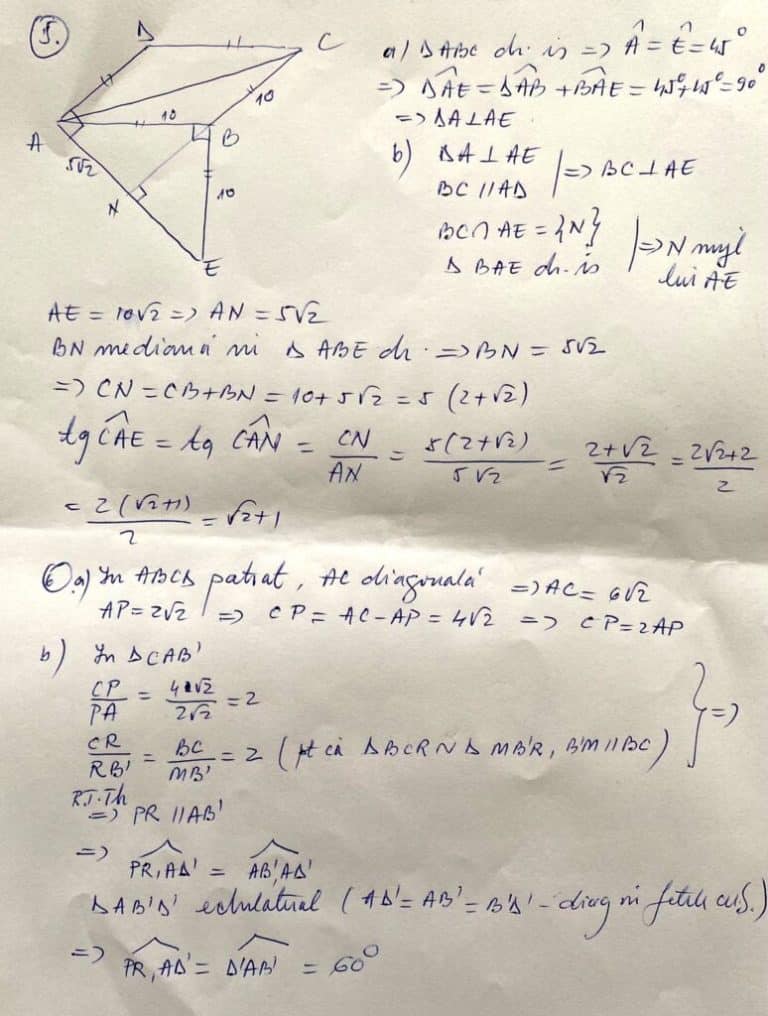 5.
D
C
10
10
A
B
5√2
10
N
E
a) ΔABE dr. is => Â = Ê = 45°
=> DAE = DAB + BAE = 45°+45° = 90°
=> DA⊥AE
b) DA⊥AE
BC // AD
=> BC⊥AE
BC∩AE = {N}
Δ BAE dr. is
=> N mijl
lui AE
AE = 10√2 => AN = 5√2
BN mediană în Δ ABE dr. => BN = 5√2
=> CN = CB+BN = 10+5√2 = 5 (2+√2)
tg CAE = tg CAN = CN/AN = 5(2+√2)/5√2 = 2+√2/√2 = 2√2+2/2
= 2(√2+1)/2 = √2+1
6. a) În ABCD pătrat, AC diagonală => AC = 6√2
AP = 2√2 => CP = AC-AP = 4√2 => CP = 2AP
b) În ΔCAB'
CP/PA = 4√2/2√2 = 2
CR/RB' = BC/MB' = 2 (pt că ΔBCR ~ Δ MB'R, B'M // BC) } =>
R.T.Th
=> PR // AB'
=> PR, AD' = AB', AD'
ΔAB'D' echilateral (AD' = AB' = B'D' - diag în fețele cub.)
=> PR, AD' = D'AB' = 60°